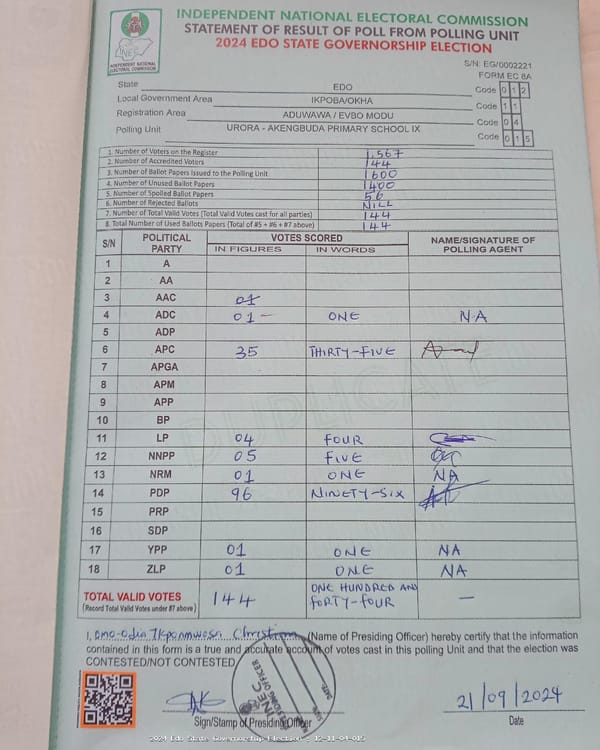 INDEPENDENT NATIONAL ELECTORAL COMMISSION
STATEMENT OF RESULT OF POLL FROM POLLING UNIT
2024 EDO STATE GOVERNORSHIP ELECTION
INEC
INDEPENDENT NATIONAL
ELECTORAL COMMISSION
S/N: EG/0002221
FORM EC 8A
State EDO Code 0 1 2
Local Government Area IKPOBA/OKHA Code 1 1
Registration Area ADUWAWA / EVBO MODU Code 0 4
Polling Unit URORA - AKENGBUDA PRIMARY SCHOOL IX Code 0 1 5
1. Number of Voters on the Register 1,567
2. Number of Accredited Voters 144
3. Number of Ballot Papers Issued to the Polling Unit 1600
4. Number of Unused Ballot Papers 1400
5. Number of Spoiled Ballot Papers 56
6. Number of Rejected Ballots NILL
7. Number of Total Valid Votes (Total Valid Votes cast for all parties) 144
8. Total Number of Used Ballots Papers (Total of #5 + #6 + #7 above) 144
S/N POLITICAL PARTY VOTES SCORED NAME/SIGNATURE OF POLLING AGENT
IN FIGURES IN WORDS
1 A
2 AA
3 AAC 01
4 ADC 01 - ONE N.A
5 ADP
6 APC 35 THIRTY-FIVE
7 APGA
8 APM
9 APP
10 BP
11 LP 04 FOUR
12 NNPP 05 FIVE
13 NRM 01 ONE NA
14 PDP 96 NINETY-SIX
15 PRP
16 SDP
17 YPP 01 ONE NA
18 ZLP 01 ONE NA
TOTAL VALID VOTES 144 ONE HUNDRED AND FORTY-FOUR —
(Record Total Valid Votes under #7 above)
DUPLICATE
I, Omo-Odia Ikponmwosa Christian (Name of Presiding Officer) hereby certify that the information
contained in this form is a true and accurate account of votes cast in this polling Unit and that the election was
CONTESTED/NOT CONTESTED
INEC
PRESIDING OFFICER
SIGN:
DATE:
21/09/2024
Sign/Stamp of Presiding Officer Date
2024 Edo State Governorship Election - 12-11-04-015